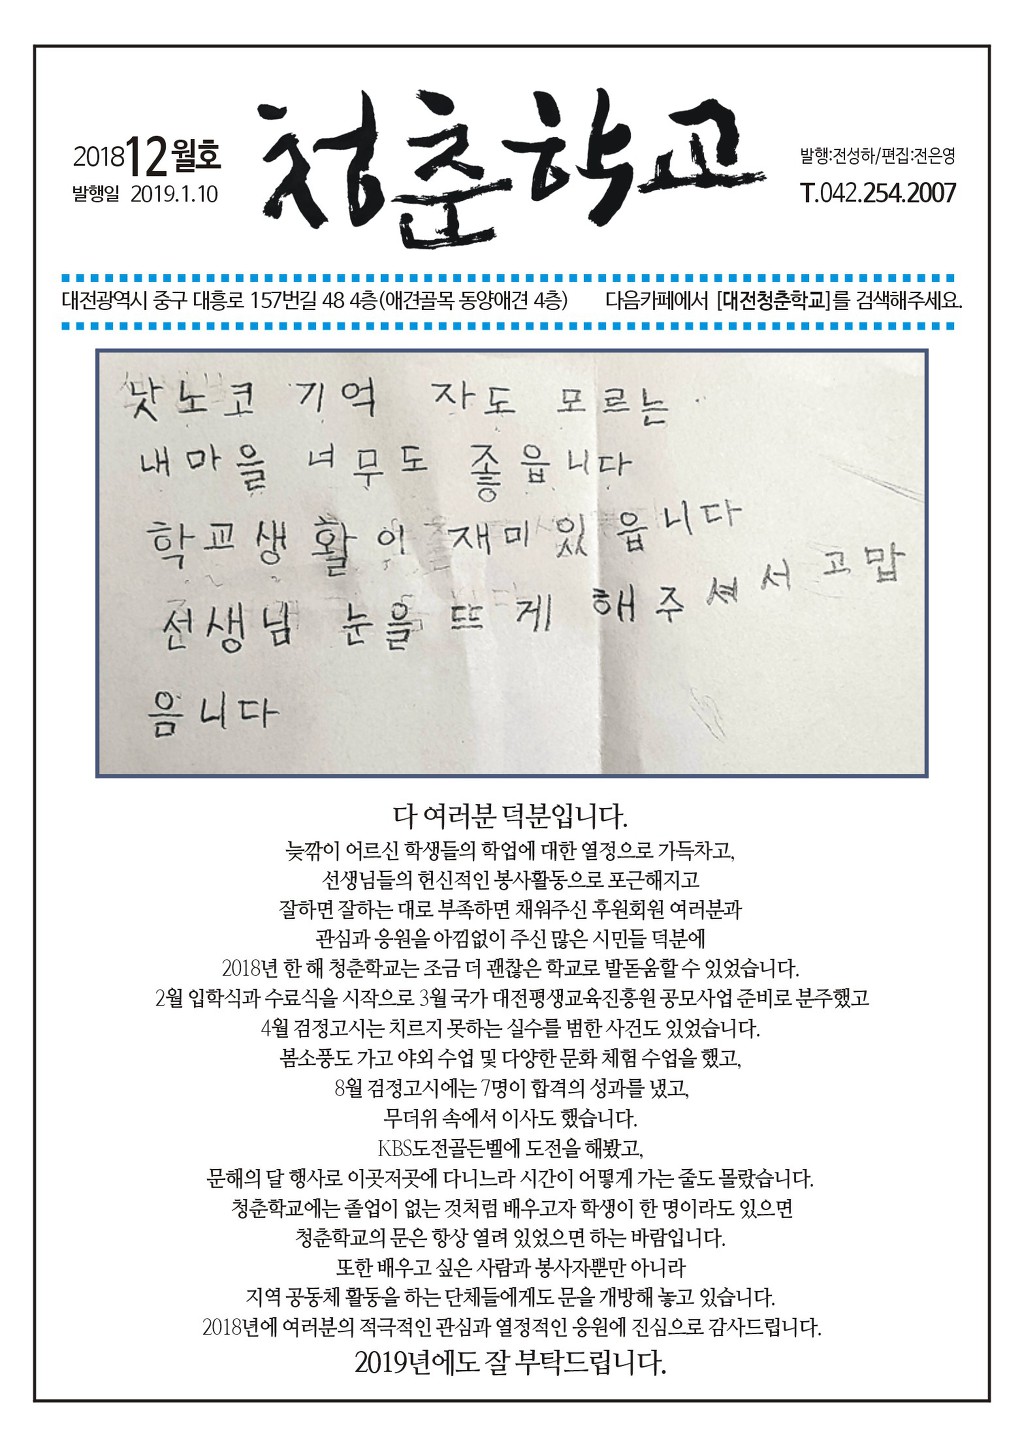 2018 12월호
발행일 2019.1.10
청춘학교
발행:전성하/편집:전은영
T.042.254.2007
대전광역시 중구 대흥로 157번길 48 4층(애견골목 동양애견 4층) 다음카페에서 [대전청춘학교]를 검색해주세요.
낫노코 기억 자도 모르는
내마을 너무도 좋읍니다
학교생활이 재미있읍니다
선생님 눈을 뜨게 해주셔서 고맙
음니다
다 여러분 덕분입니다.
늦깎이 어르신 학생들의 학업에 대한 열정으로 가득차고,
선생님들의 헌신적인 봉사활동으로 포근해지고
잘하면 잘하는 대로 부족하면 채워주신 후원회원 여러분과
관심과 응원을 아낌없이 주신 많은 시민들 덕분에
2018년 한 해 청춘학교는 조금 더 괜찮은 학교로 발돋움할 수 있었습니다.
2월 입학식과 수료식을 시작으로 3월 국가 대전평생교육진흥원 공모사업 준비로 분주했고
4월 검정고시는 치르지 못하는 실수를 범한 사건도 있었습니다.
봄소풍도 가고 야외 수업 및 다양한 문화 체험 수업을 했고,
8월 검정고시에는 7명이 합격의 성과를 냈고,
무더위 속에서 이사도 했습니다.
KBS도전골든벨에 도전을 해봤고,
문해의 달 행사로 이곳저곳에 다니느라 시간이 어떻게 가는 줄도 몰랐습니다.
청춘학교에는 졸업이 없는 것처럼 배우고자 학생이 한 명이라도 있으면
청춘학교의 문은 항상 열려 있었으면 하는 바람입니다.
또한 배우고 싶은 사람과 봉사자뿐만 아니라
지역 공동체 활동을 하는 단체들에게도 문을 개방해 놓고 있습니다.
2018년에 여러분의 적극적인 관심과 열정적인 응원에 진심으로 감사드립니다.
2019년에도 잘 부탁드립니다.